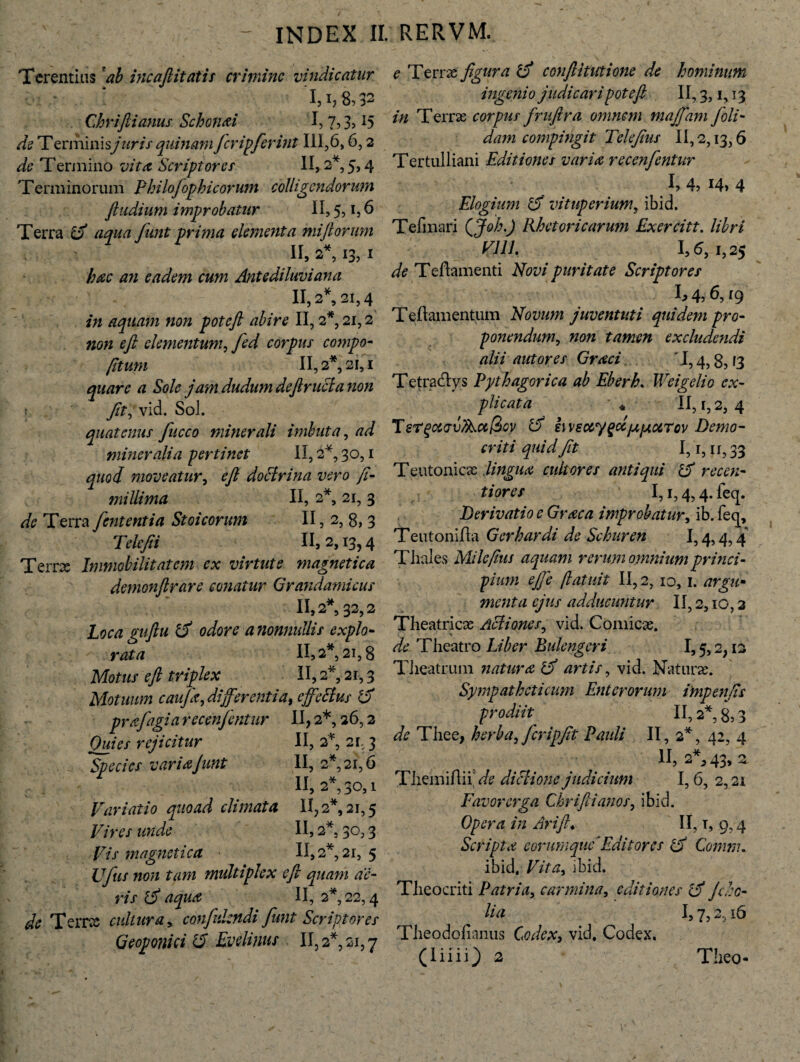 INDEX II. RERVM.
Terentius ab incaſtitatis crimine vindicatur
I, 1, 8, 32
Chriſtianus Schonæi I, 7, 3, 15
de Terminis juris quinam ſcripſerint III, 6, 6, 2
de Termino vitæ Scriptores II, 2*, 5, 4
Terminorum Philoſophicorum colligendorum
ſtudium improbatur II, 5, 1, 6
Terra & aqua ſunt prima elementa miſtorum
II, 2*, 13, 1
hæc an eadem cum Antediluviana
II, 2*, 21, 4
in aquam non poteſt abire II, 2*, 21, 2
non eſt elementum, ſed corpus compo-
ſitum II, 2*, 21, 1
quare a Sole jamdudum deſtructa non
ſit, vid. Sol.
quatenus ſucco minerali imbuta, ad
mineralia pertinet II, 2*, 30, 1
quod moveatur, eſt doctrina vero ſi-
millima II, 2*, 21, 3
de Terra ſententia Stoicorum II, 2, 8, 3
Teleſii II, 2, 13, 4
Terræ Immobilitatem ex virtute magnetica
demonſtrare conatur Grandamicus
II, 2*, 32, 2
Loca guſtu & odore a nonnullis explo-
rata II, 2*, 21, 8
Motus eſt triplex II, 2*, 21, 3
Motuum cauſæ, differentia, effectus &
præſagia recenſentur II, 2*, 26, 2
Quies rejicitur II, 2*, 21, 3
Species variæ ſunt II, 2*, 21, 6
II, 2*, 30, 1
Variatio quoad climata II, 2*, 21, 5
Vires unde II, 2*, 30, 3
Vis magnetica II, 2*, 21, 5
Uſus non tam multiplex eſt quam aë-
ris & aquæ II, 2*, 22, 4
de Terræ cultura, conſulendi ſunt Scriptores
Geoponici & Evelinus II, 2*, 21, 7
e Terræ figura & conſtitutione de hominum
ingenio judicari poteſt II, 3, 1, 13
in Terræ corpus fruſtra omnem maſſam ſoli-
dam compingit Teleſius II, 2, 13, 6
Tertulliani Editiones variæ recenſentur
I, 4, 14, 4
Elogium & vituperium, ibid.
Teſmari (Joh.) Rhetoricarum Exercitt. libri
VIII. I, 6, 1, 25
de Teſtamenti Novi puritate Scriptores
I, 4, 6, 19
Teſtamentum Novum juventuti quidem pro-
ponendum, non tamen excludendi
alii autores Græci I, 4, 8, 13
Tetractys Pythagorica ab Eberh. Weigelio ex-
plicata II, 1, 2, 4
Τετρασύλλαβον & ἐννεαγράμματον Demo-
criti quid ſit I, 1, 11, 33
Teutonicæ linguæ cultores antiqui & recen-
tiores I, 1, 4, 4. ſeq.
Derivatio e Græca improbatur, ib. ſeq,
Teutoniſta Gerhardi de Schuren I, 4, 4, 4
Thales Mileſius aquam rerum omnium princi-
pium eſſe ſtatuit II, 2, 10, 1. argu-
menta ejus adducuntur II, 2, 10, 2
Theatricæ Actiones, vid. Comicæ.
de Theatro Liber Bulengeri I, 5, 2, 12
Theatrum naturæ & artis, vid. Naturæ.
Sympatheticum Enterorum impenſis
prodiit II, 2*, 8, 3
de Thee, herba, ſcripſit Pauli II, 2*, 42, 4
II, 2*, 43, 2
Themiſtii de dictione judicium I, 6, 2, 21
Favor erga Chriſtianos, ibid.
Opera in Ariſt. II, 1, 9, 4
Scripta eorumque Editores & Comm.
ibid. Vita, ibid.
Theocriti Patria, carmina, editiones & ſcho-
lia I, 7, 2, 16
Theodoſianus Codex, vid. Codex.
(liiii) 2 Theo-